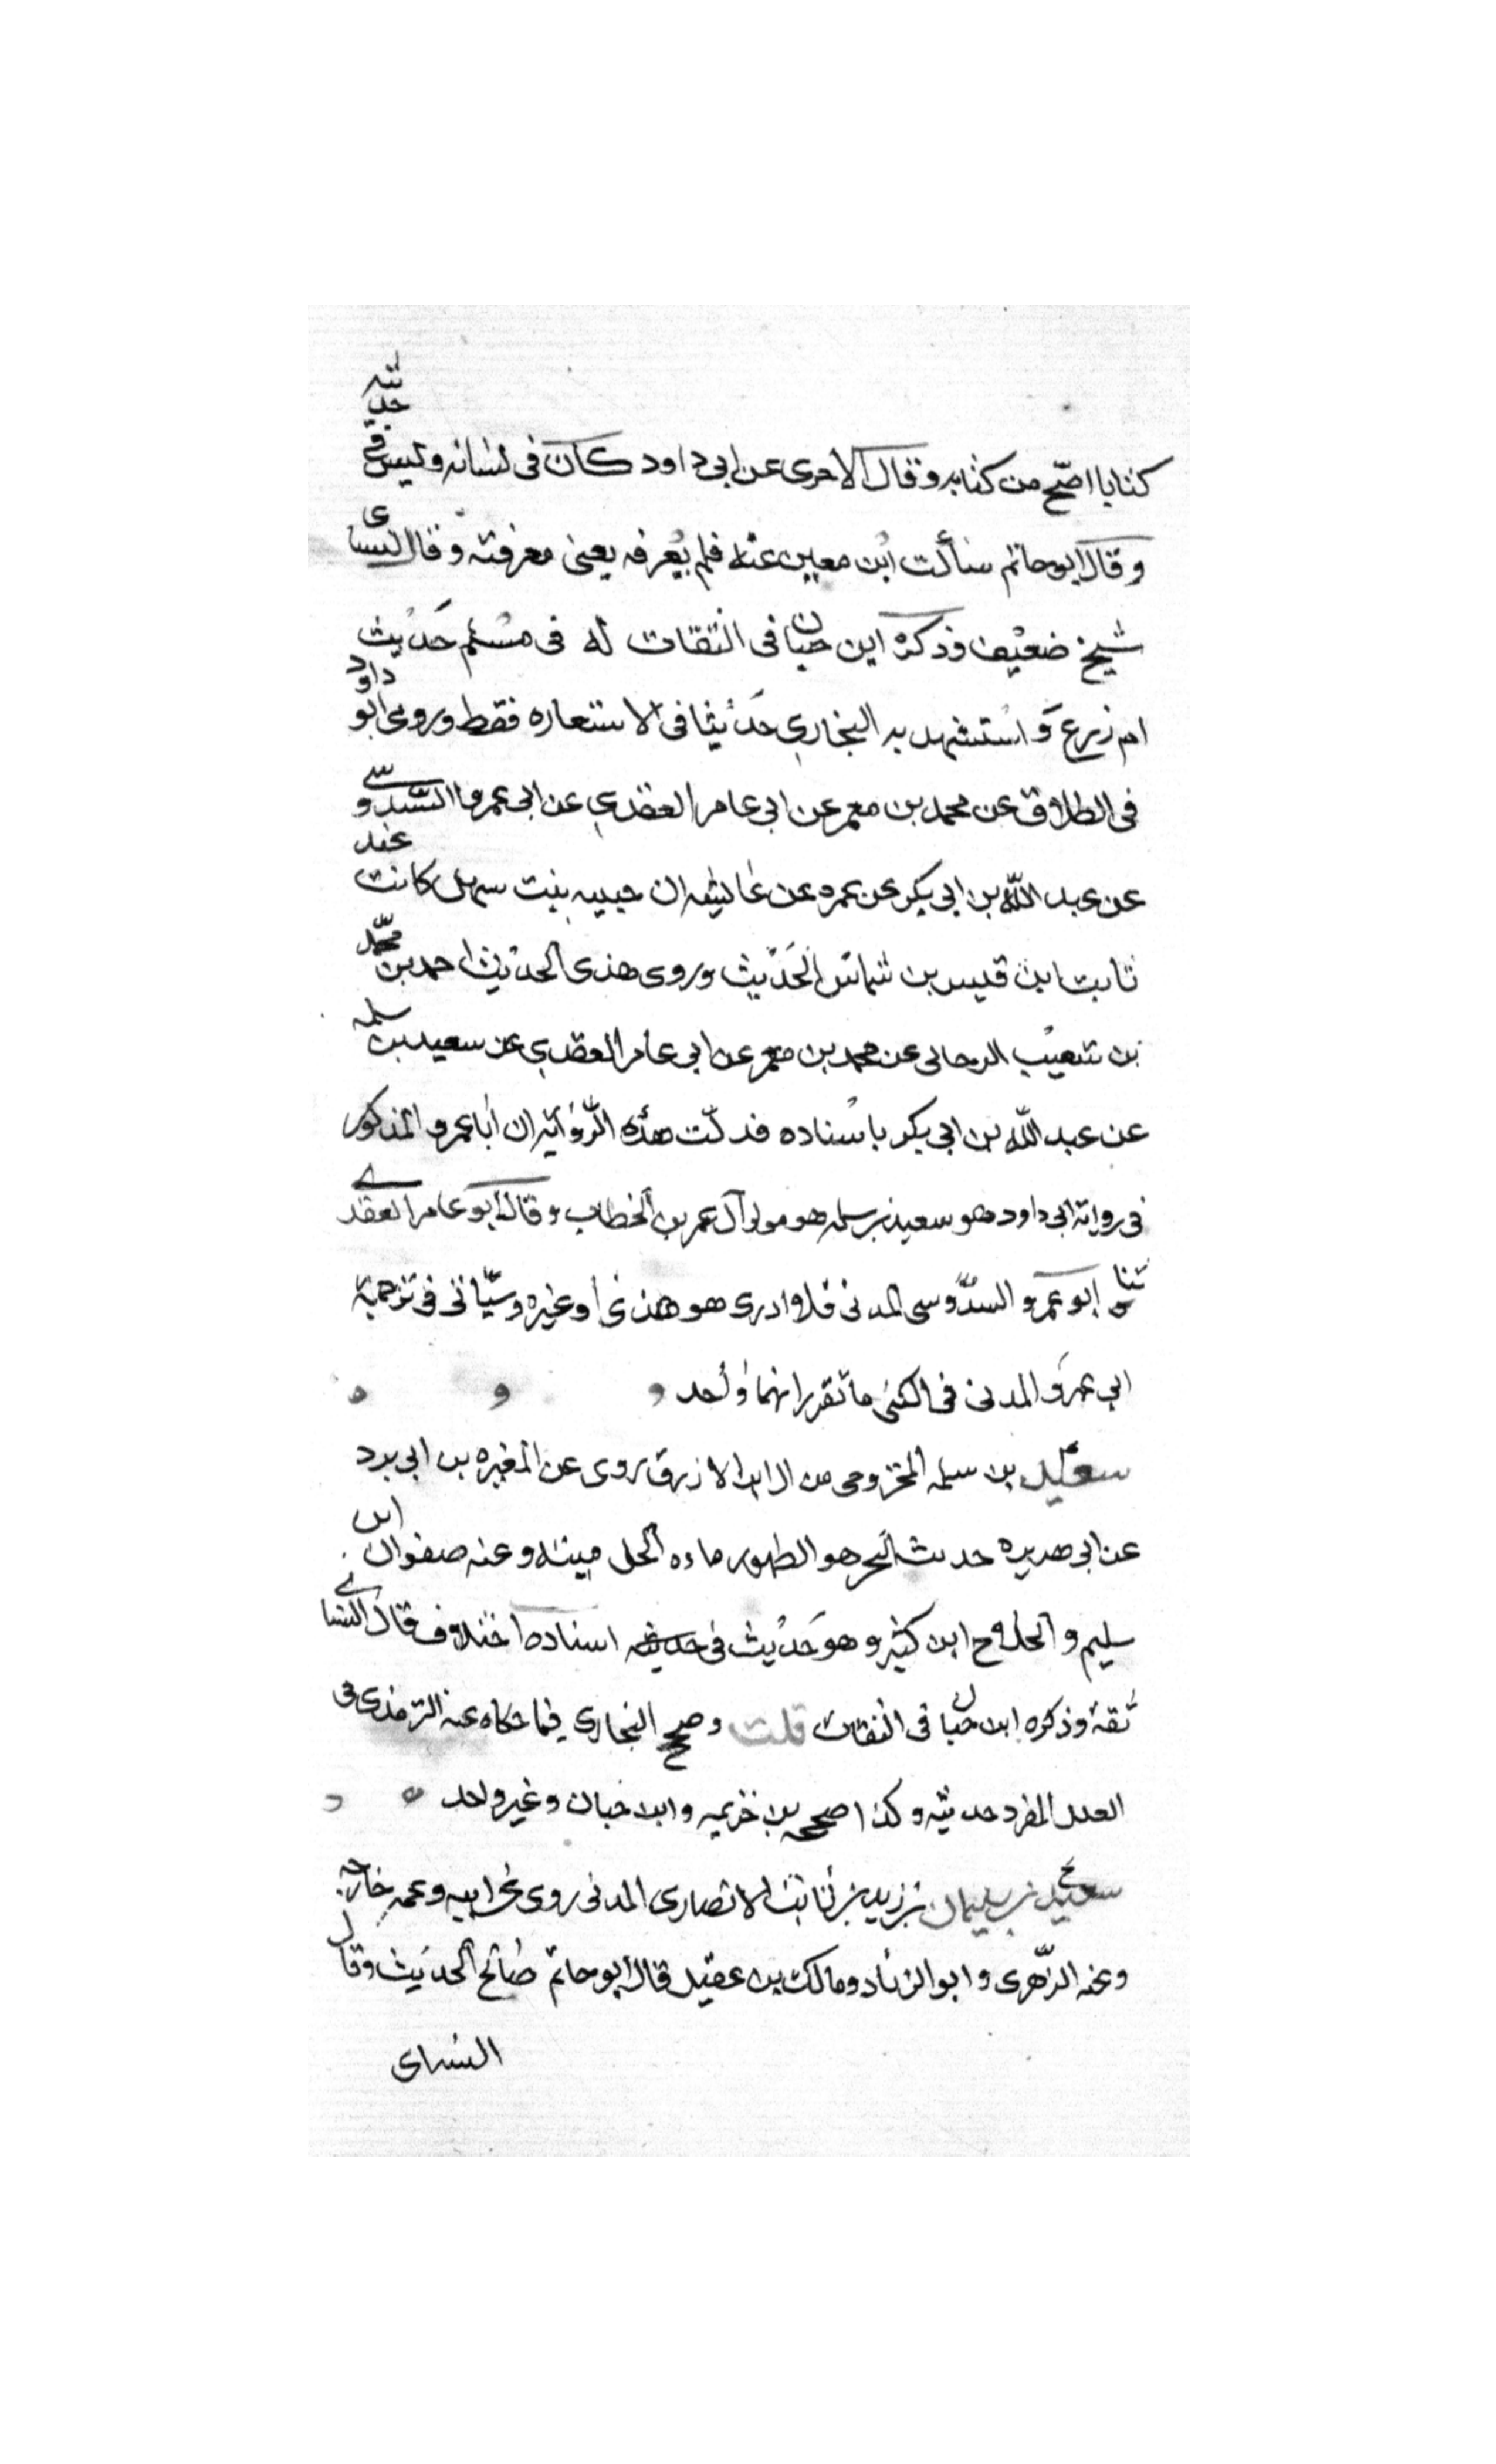 كتابا اصح من كتابه وقال الاجرى عن ابى داود كان فى لسانه وليس فى حديثه
وقال ابو حاتم سألت ابن معين عنه فلم يعرفه يعنى معرفته وقال النساى
شيخ ضعيف وذكره ابن حبان فى الثقات له فى مسلم حديث
ام زرع و استشهد به البخارى حديثا فى الاستعاره فقط وروى ابو داود
فى الطلاق عن محمد بن معمر عن ابى عامر العقدى عن ابى عمرو السدوسى
عن عبد الله بن ابى بكر عن عمره عن عايشه ان حبيبه بنت سهل كانت عند
ثابت ابن قيس بن شماس الحديث وروى هذى الحديث احمد بن محمد
بن شعيب الرجانى عن محمد بن معمر عن ابى عامر العقدى عن سعيد بن سلمه
عن عبد الله بن ابى بكر باسناده فدلت هذه الرواية ان ابا عمرو المذكور
فى رواية ابى داود هو سعيد بن سلمه هو مولى آل عمر بن الخطاب وقال ابو عامر العقدى
ثنا ابو عمرو السدوسى المدنى فلا ادرى هو هذى أو غيره وسياتى فى ترجمة
ابى عمرو المدنى فى الكنى ما تقرر انهما واحد
سعيد بن سلمه المخزومى من ال ابن الازرق روى عن المغيره بن ابى برد
عن ابى هريره حديث البحر هو الطهور ماءه الحل ميتته وعنه صفوان ابن
سليم و الجلاح ابن كثير و هو حديث فى حديثه اسناده اختلاف قال النساى
ثقة وذكره ابن حبان فى الثقات قلت وصحح البخارى فيما حكاه عنه الترمذى فى
العلل المفرد حديثه وكذا صححه بن خزيمه وابن حبان وغير واحد
سعيد بن سليمان بن زيد بن ثابت الانصارى المدنى روى عن ابيه وعمه خارجه
وعنه الزهرى و ابو الزناد ومالك بن عقيل قال ابو حاتم صالح الحديث وقال
النساى